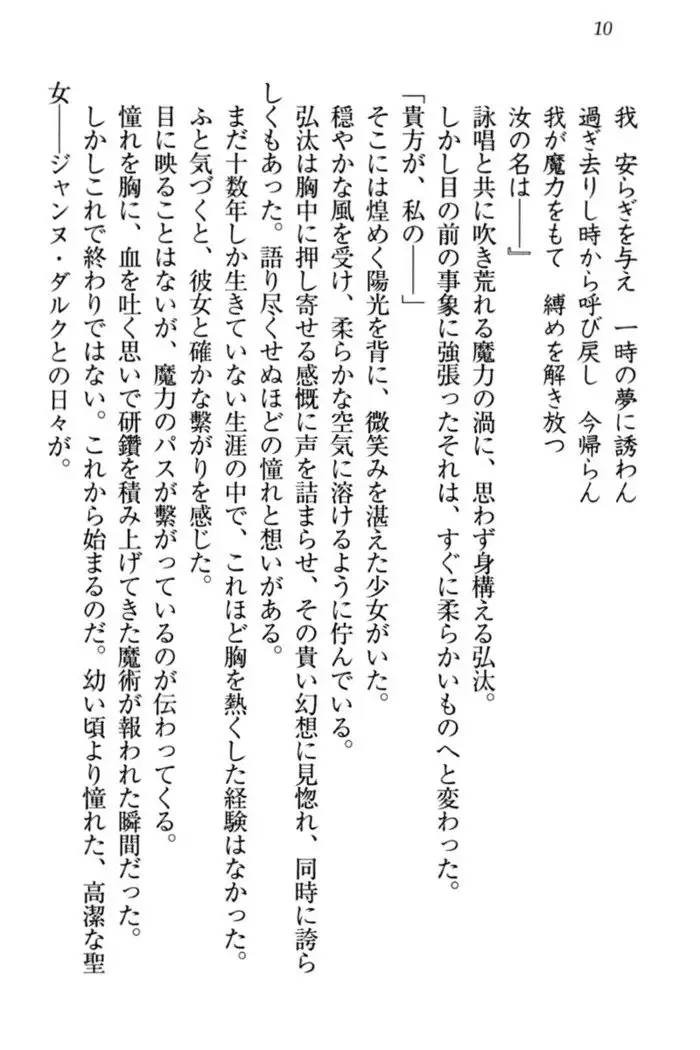 10
我　安らぎを与え　一時の夢に誘わん
過ぎ去りし時から呼び戻し　今帰らん
我が魔力をもて　縛めを解き放つ
汝の名は――』
詠唱と共に吹き荒れる魔力の渦に、思わず身構える弘汰。
しかし目の前の事象に強張ったそれは、すぐに柔らかいものへと変わった。
「貴方が、私の――」
そこには煌めく陽光を背に、微笑みを湛えた少女がいた。
穏やかな風を受け、柔らかな空気に溶けるように佇んでいる。
弘汰は胸中に押し寄せる感慨に声を詰まらせ、その貴い幻想に見惚れ、同時に誇ら
しくもあった。語り尽くせぬほどの憧れと想いがある。
まだ十数年しか生きていない生涯の中で、これほど胸を熱くした経験はなかった。
ふと気づくと、彼女と確かな繋がりを感じた。
目に映ることはないが、魔力のパスが繋がっているのが伝わってくる。
憧れを胸に、血を吐く思いで研鑽を積み上げてきた魔術が報われた瞬間だった。
しかしこれで終わりではない。これから始まるのだ。幼い頃より憧れた、高潔な聖
女――ジャンヌ・ダルクとの日々が。